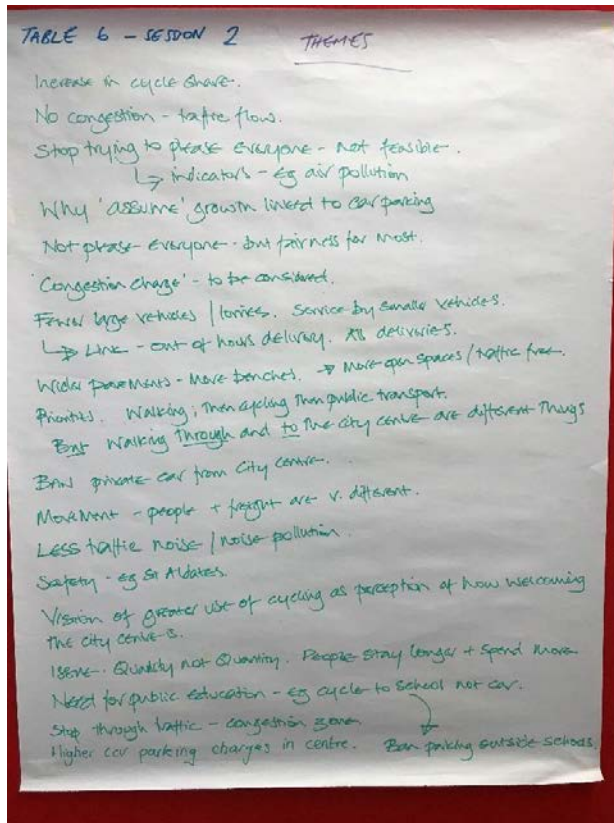 TABLE 6 - SESSION 2 THEMES
Increase in cycle share.
No congestion - traffic flow.
Stop trying to please everyone - not feasible.
↳ indicators - eg air pollution
Why 'assume' growth linked to car parking
Not please everyone - but fairness for most.
'Congestion charge' - to be considered.
Fewer large vehicles / lorries. Service by smaller vehicles.
↳ Link - out of hours delivery. All deliveries.
Wider pavements - More benches. → More open spaces / traffic free.
Priorities. Walking, then cycling then public transport.
But walking through and to the city centre are different things
Ban private car from city centre.
Movement - people + freight are v. different.
Less traffic noise / noise pollution.
Safety - eg St Aldates.
Vision of greater use of cycling as perception of how welcoming
the city centre is.
Issue - Quality not Quantity. People stay longer + spend more
Need for public education - eg cycle to school not car.
Stop through traffic - congestion zone
Higher car parking charges in centre. Ban parking outside schools.